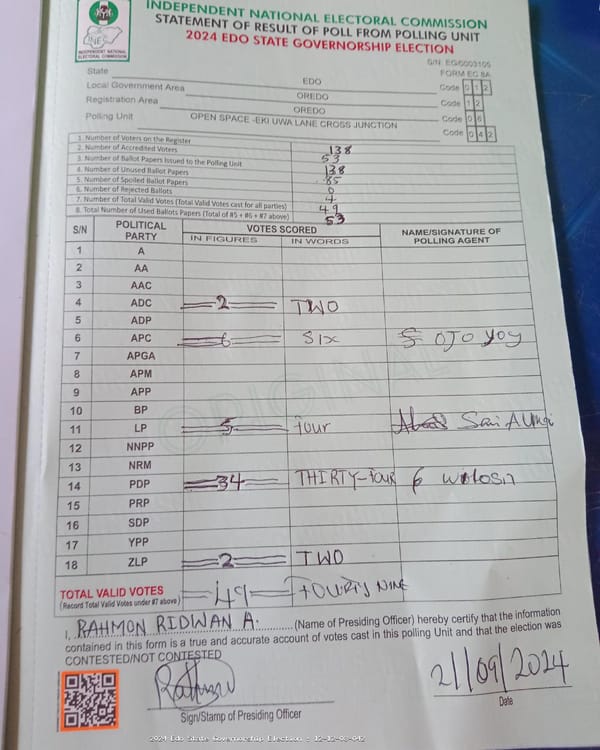 INDEPENDENT NATIONAL ELECTORAL COMMISSION
STATEMENT OF RESULT OF POLL FROM POLLING UNIT
2024 EDO STATE GOVERNORSHIP ELECTION
INEC
INDEPENDENT NATIONAL ELECTORAL COMMISSION
S/N: EG/0003105
FORM EC 8A
State EDO Code 0 1 2
Local Government Area OREDO Code 1 2
Registration Area OREDO Code 0 6
Polling Unit OPEN SPACE -EKI UWA LANE CROSS JUNCTION Code 0 4 2
1. Number of Voters on the Register 138
2. Number of Accredited Voters 53
3. Number of Ballot Papers Issued to the Polling Unit 138
4. Number of Unused Ballot Papers 85
5. Number of Spoiled Ballot Papers 0
6. Number of Rejected Ballots 4
7. Number of Total Valid Votes (Total Valid Votes cast for all parties) 49
8. Total Number of Used Ballots Papers (Total of #5 + #6 + #7 above) 53
S/N POLITICAL PARTY VOTES SCORED NAME/SIGNATURE OF POLLING AGENT
IN FIGURES IN WORDS
1 A
2 AA
3 AAC
4 ADC 2 TWO
5 ADP
6 APC 6 SIX OJO YOY
7 APGA
8 APM
9 APP
10 BP
11 LP 5 four
12 NNPP
13 NRM
14 PDP 34 THIRTY-four
15 PRP
16 SDP
17 YPP
18 ZLP 2 TWO
ORIGINAL
TOTAL VALID VOTES 49 FOURTY NINE
(Record Total Valid Votes under #7 above)
I, RAHMON RIDWAN A. (Name of Presiding Officer) hereby certify that the information
contained in this form is a true and accurate account of votes cast in this polling Unit and that the election was
CONTESTED/NOT CONTESTED
21/09/2024
Sign/Stamp of Presiding Officer Date
2024 Edo State Governorship Election : 12-12-06-042